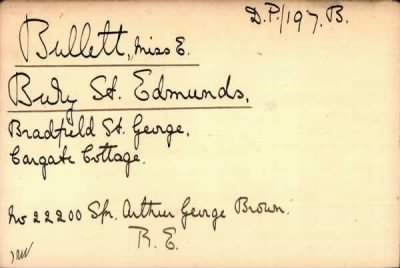 D.P./197.B.
Bullett, Miss E.
Bury St. Edmunds,
Bradfield St. George,
Cargate Cottage.
No 22200 Spr. Arthur George Brown.
R.E.